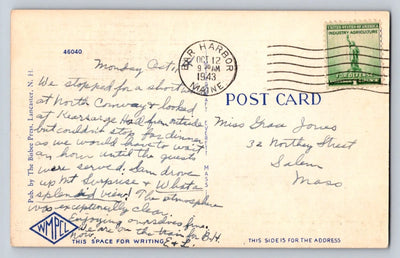 46040
BAR HARBOR
OCT 12
9 AM
1943
MAINE
UNITED STATES OF AMERICA
INDUSTRY AGRICULTURE
FOR DEFENSE
POST CARD
Monday Oct 11
We stopped for a short
at North Conway & looked
at Kearsarge Hall from outside
but couldn't stop for dinner
as we would have to wait
an hour until the guests
were served. Sam drove
up Mt Surprise & What a
splendid view! The atmosphere
was exceptionally clear.
Enjoying ourselves
now. We are on the train for B.H.
E & L.
Miss Grace Jones
32 Northey Street
Salem
Mass
Pub. by The Bisbee Press, Lancaster, N. H.
MASS
WMPCL
THIS SPACE FOR WRITING
THIS SIDE IS FOR THE ADDRESS